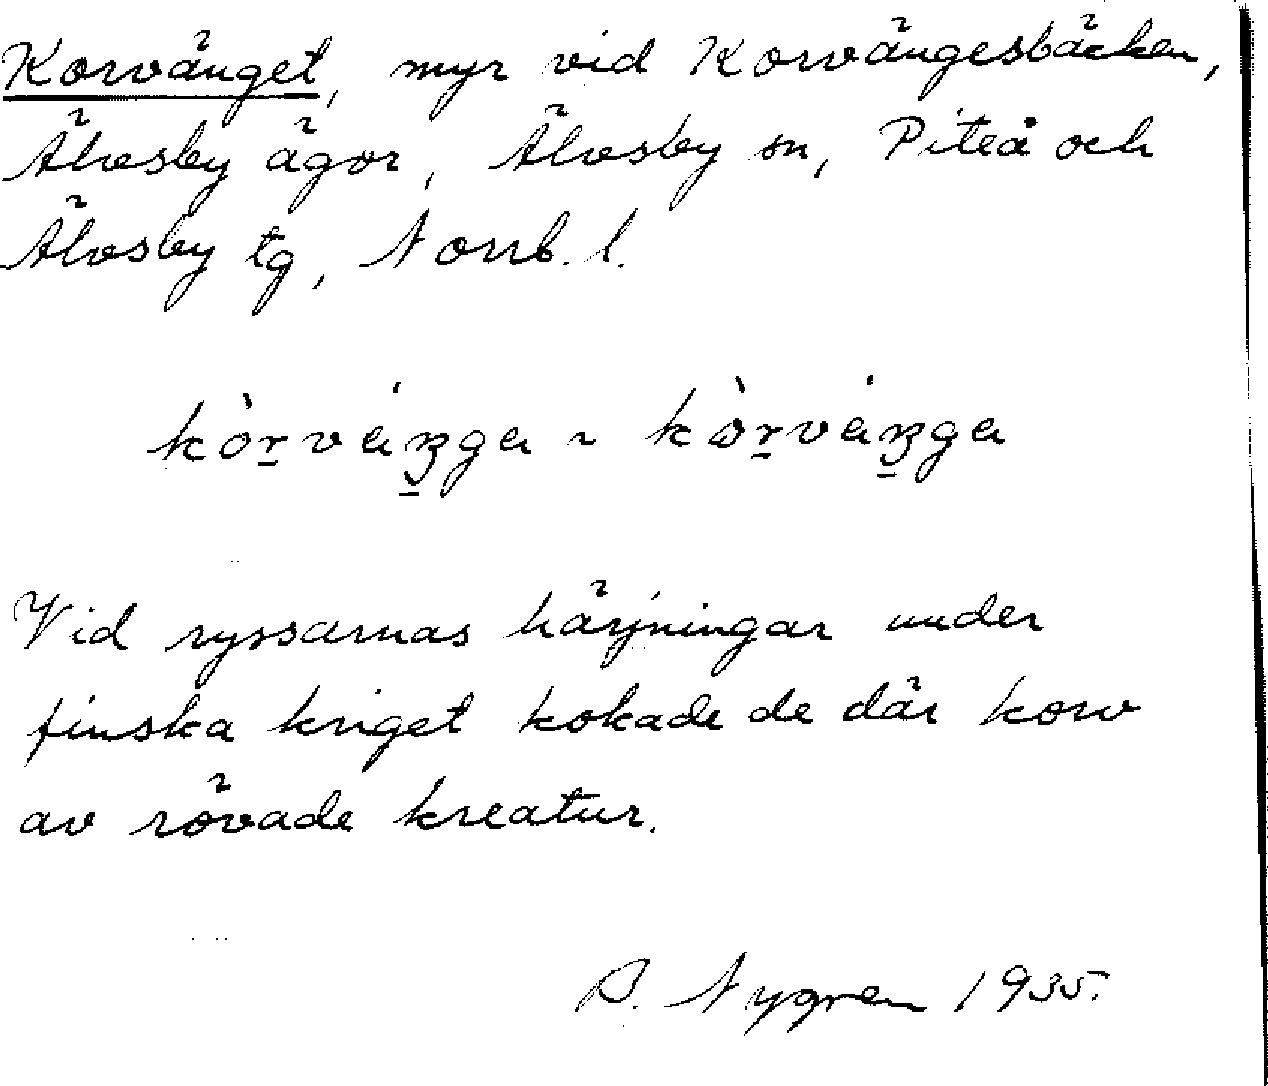 Korvänget, myr vid Korvängesbäcken,
Älvsby ägor, Älvsby sn, Piteå och
Älvsby tg, Norrb. l.
Vid ryssarnas härjningar under
finska kriget kokade de där korv
av rövade kreatur.
Nygren 1935.